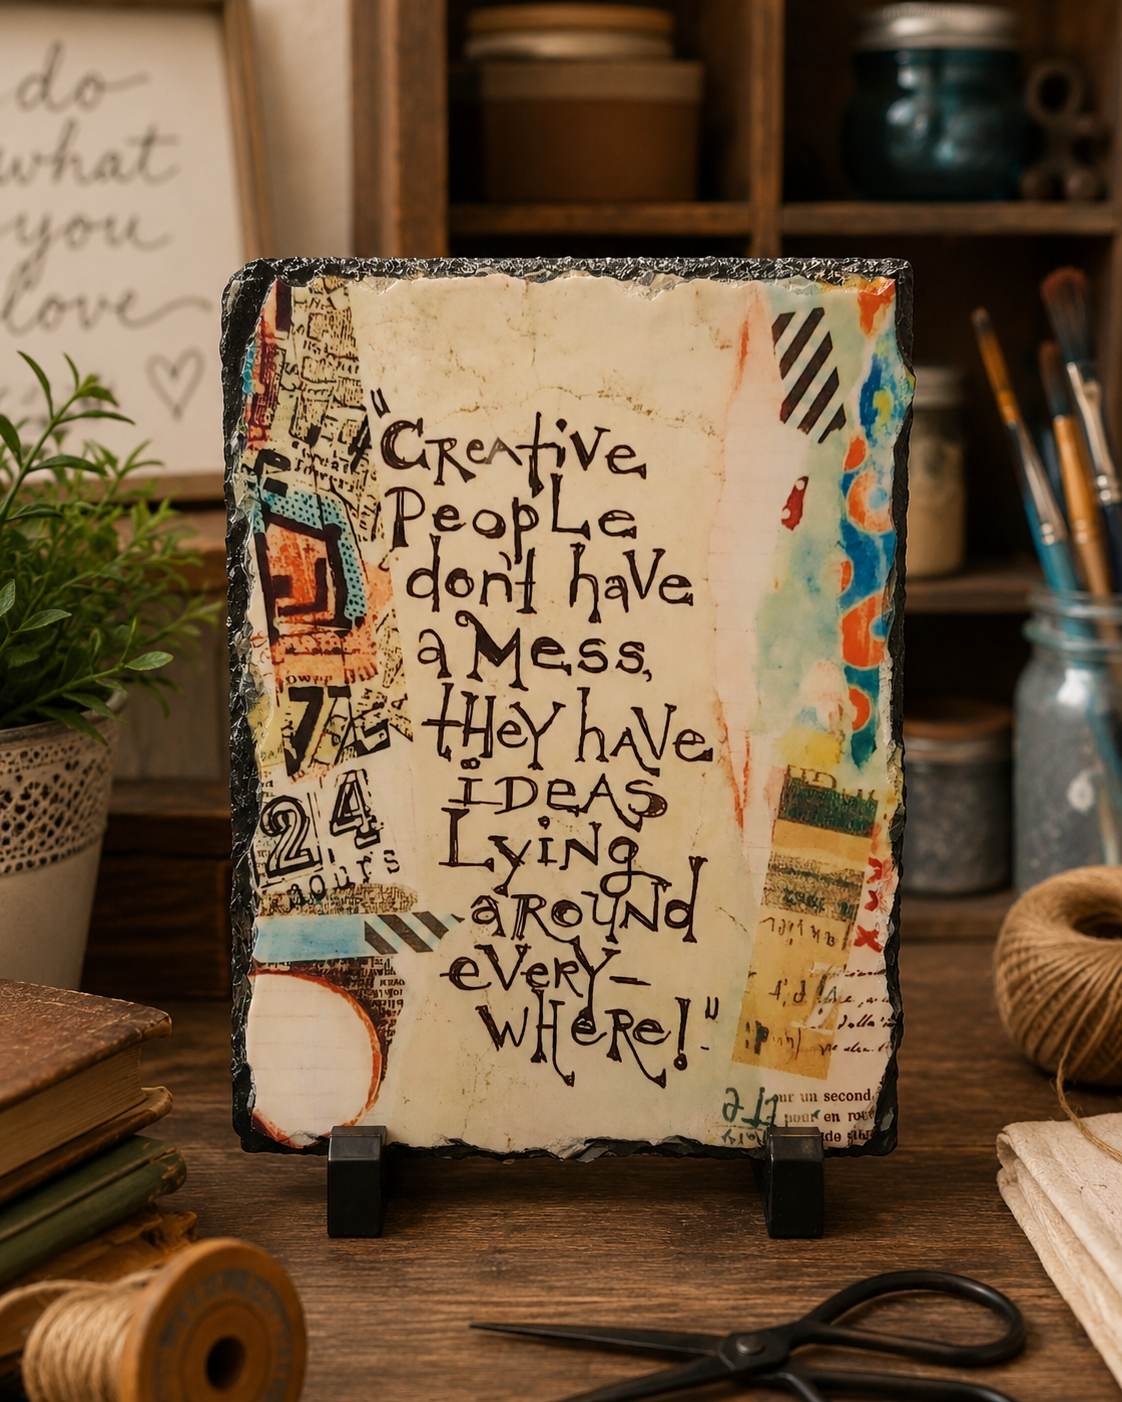 do
what
you
love
"Creative
People
don't have
a Mess,
they have
ideas
Lying
around
every-
where!"
7
24
hours
ur un second
pour en rou